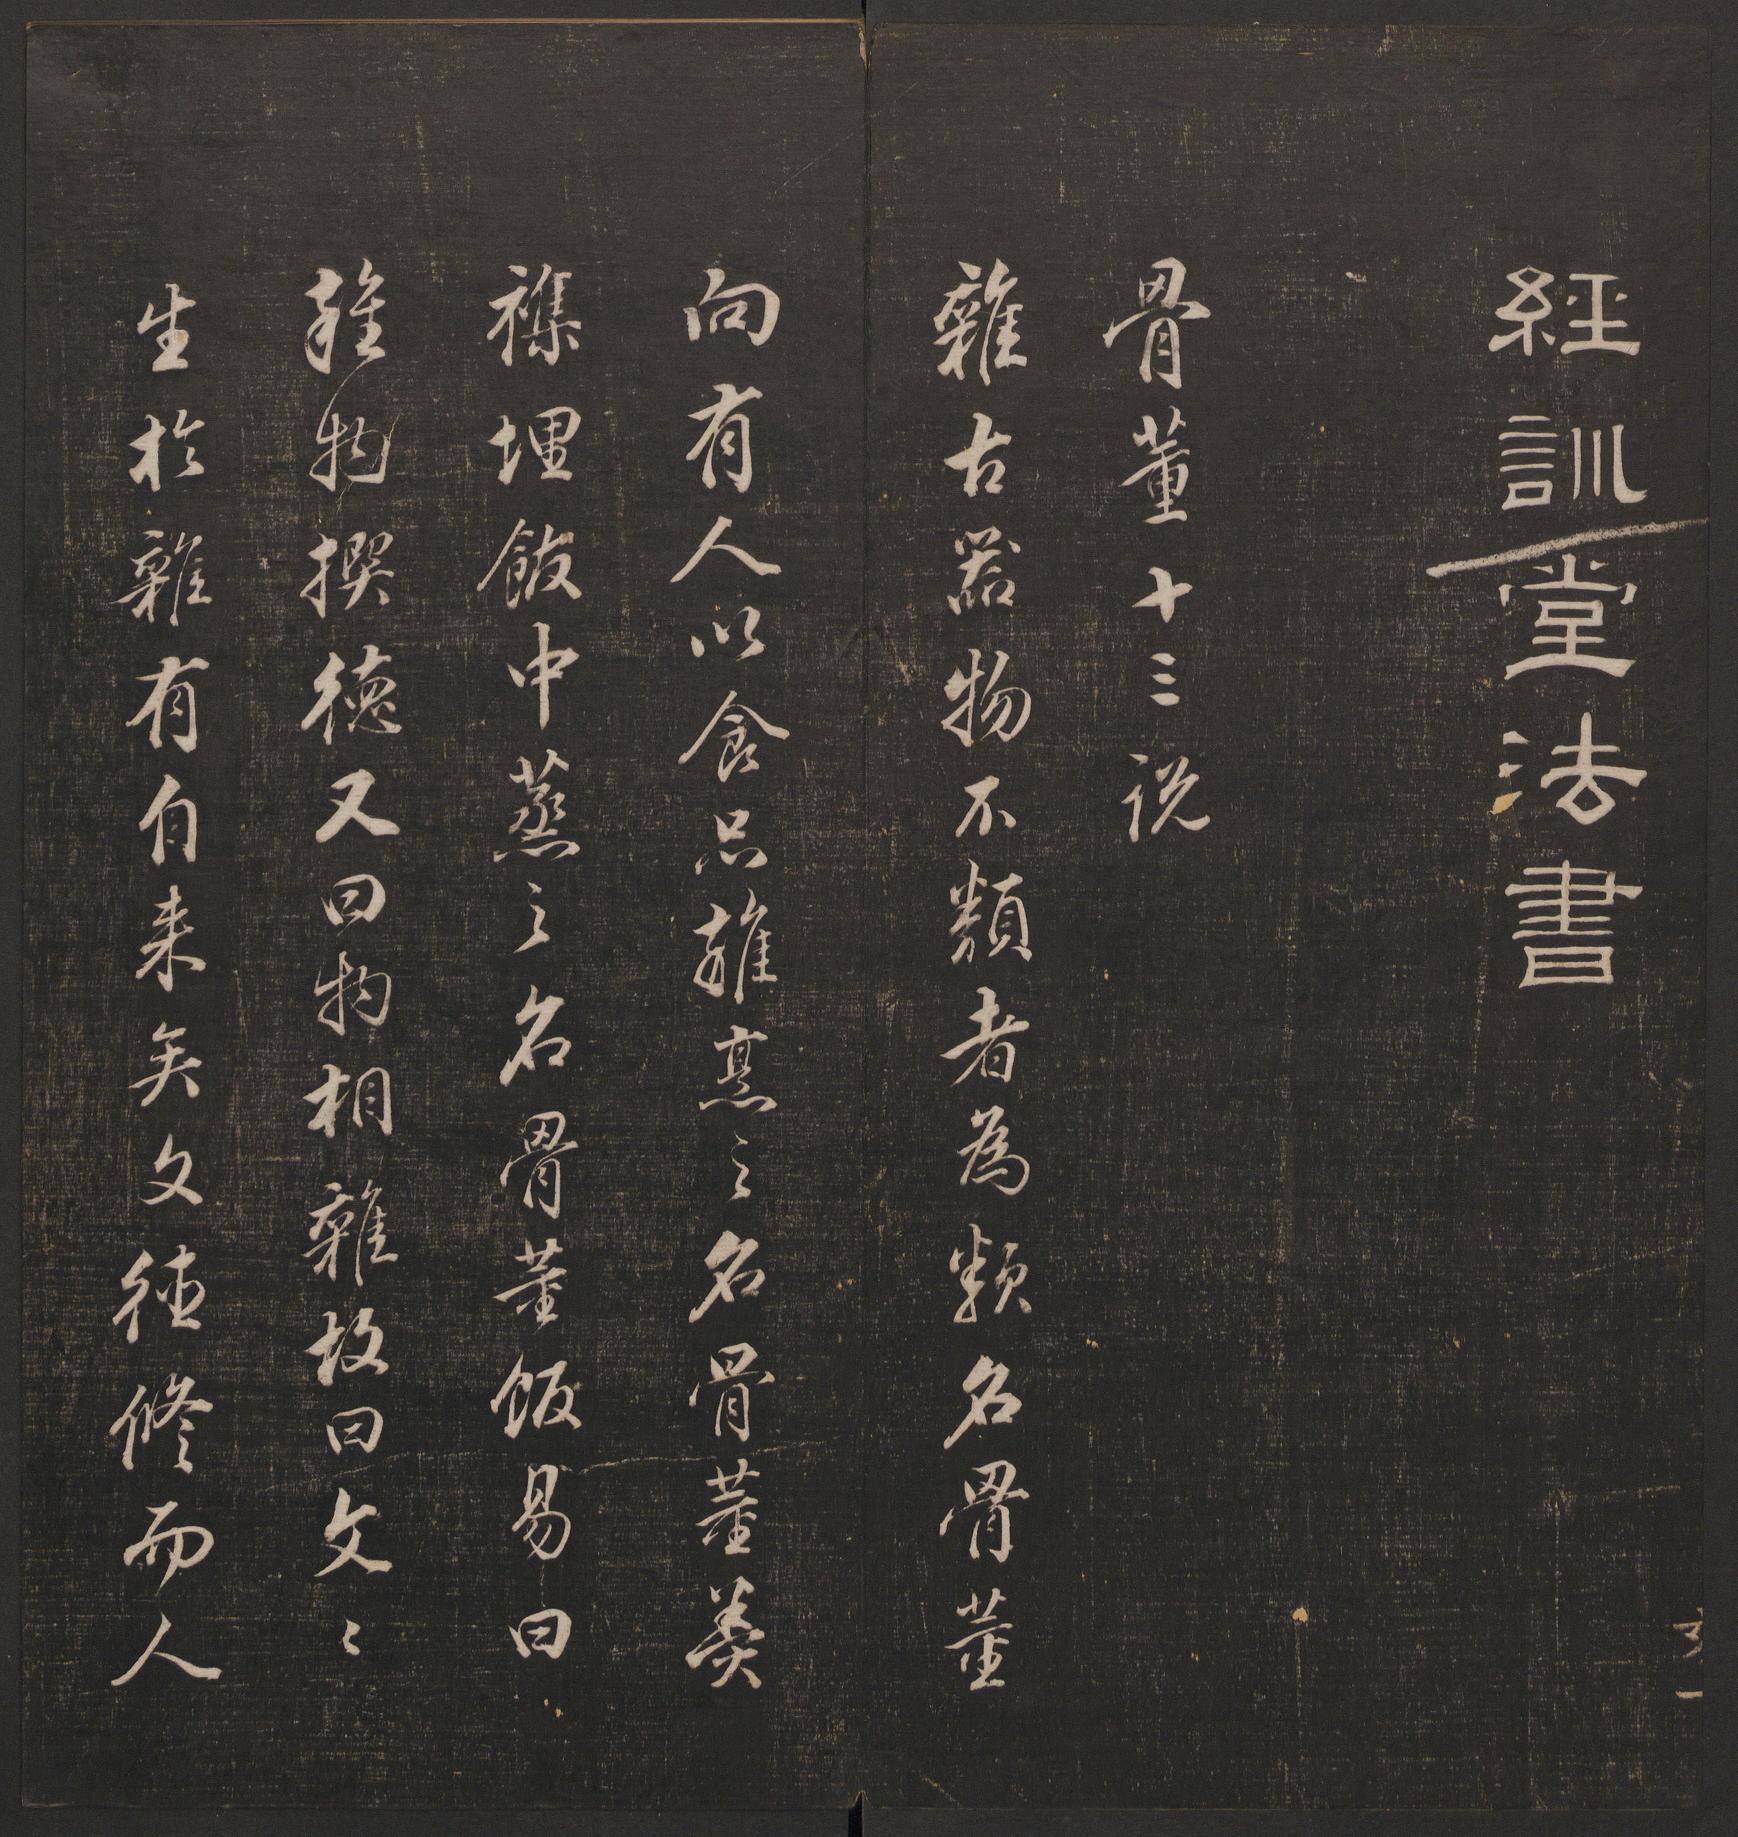 經訓堂法書
骨董十三説
雜古器物不類者為類名骨董
向有人以食品雜烹之名骨董羹
襍埋飯中蒸之名骨董飯易曰
雜物撰德又曰物相雜故曰文〻
生於雜有自来矣文德修而人